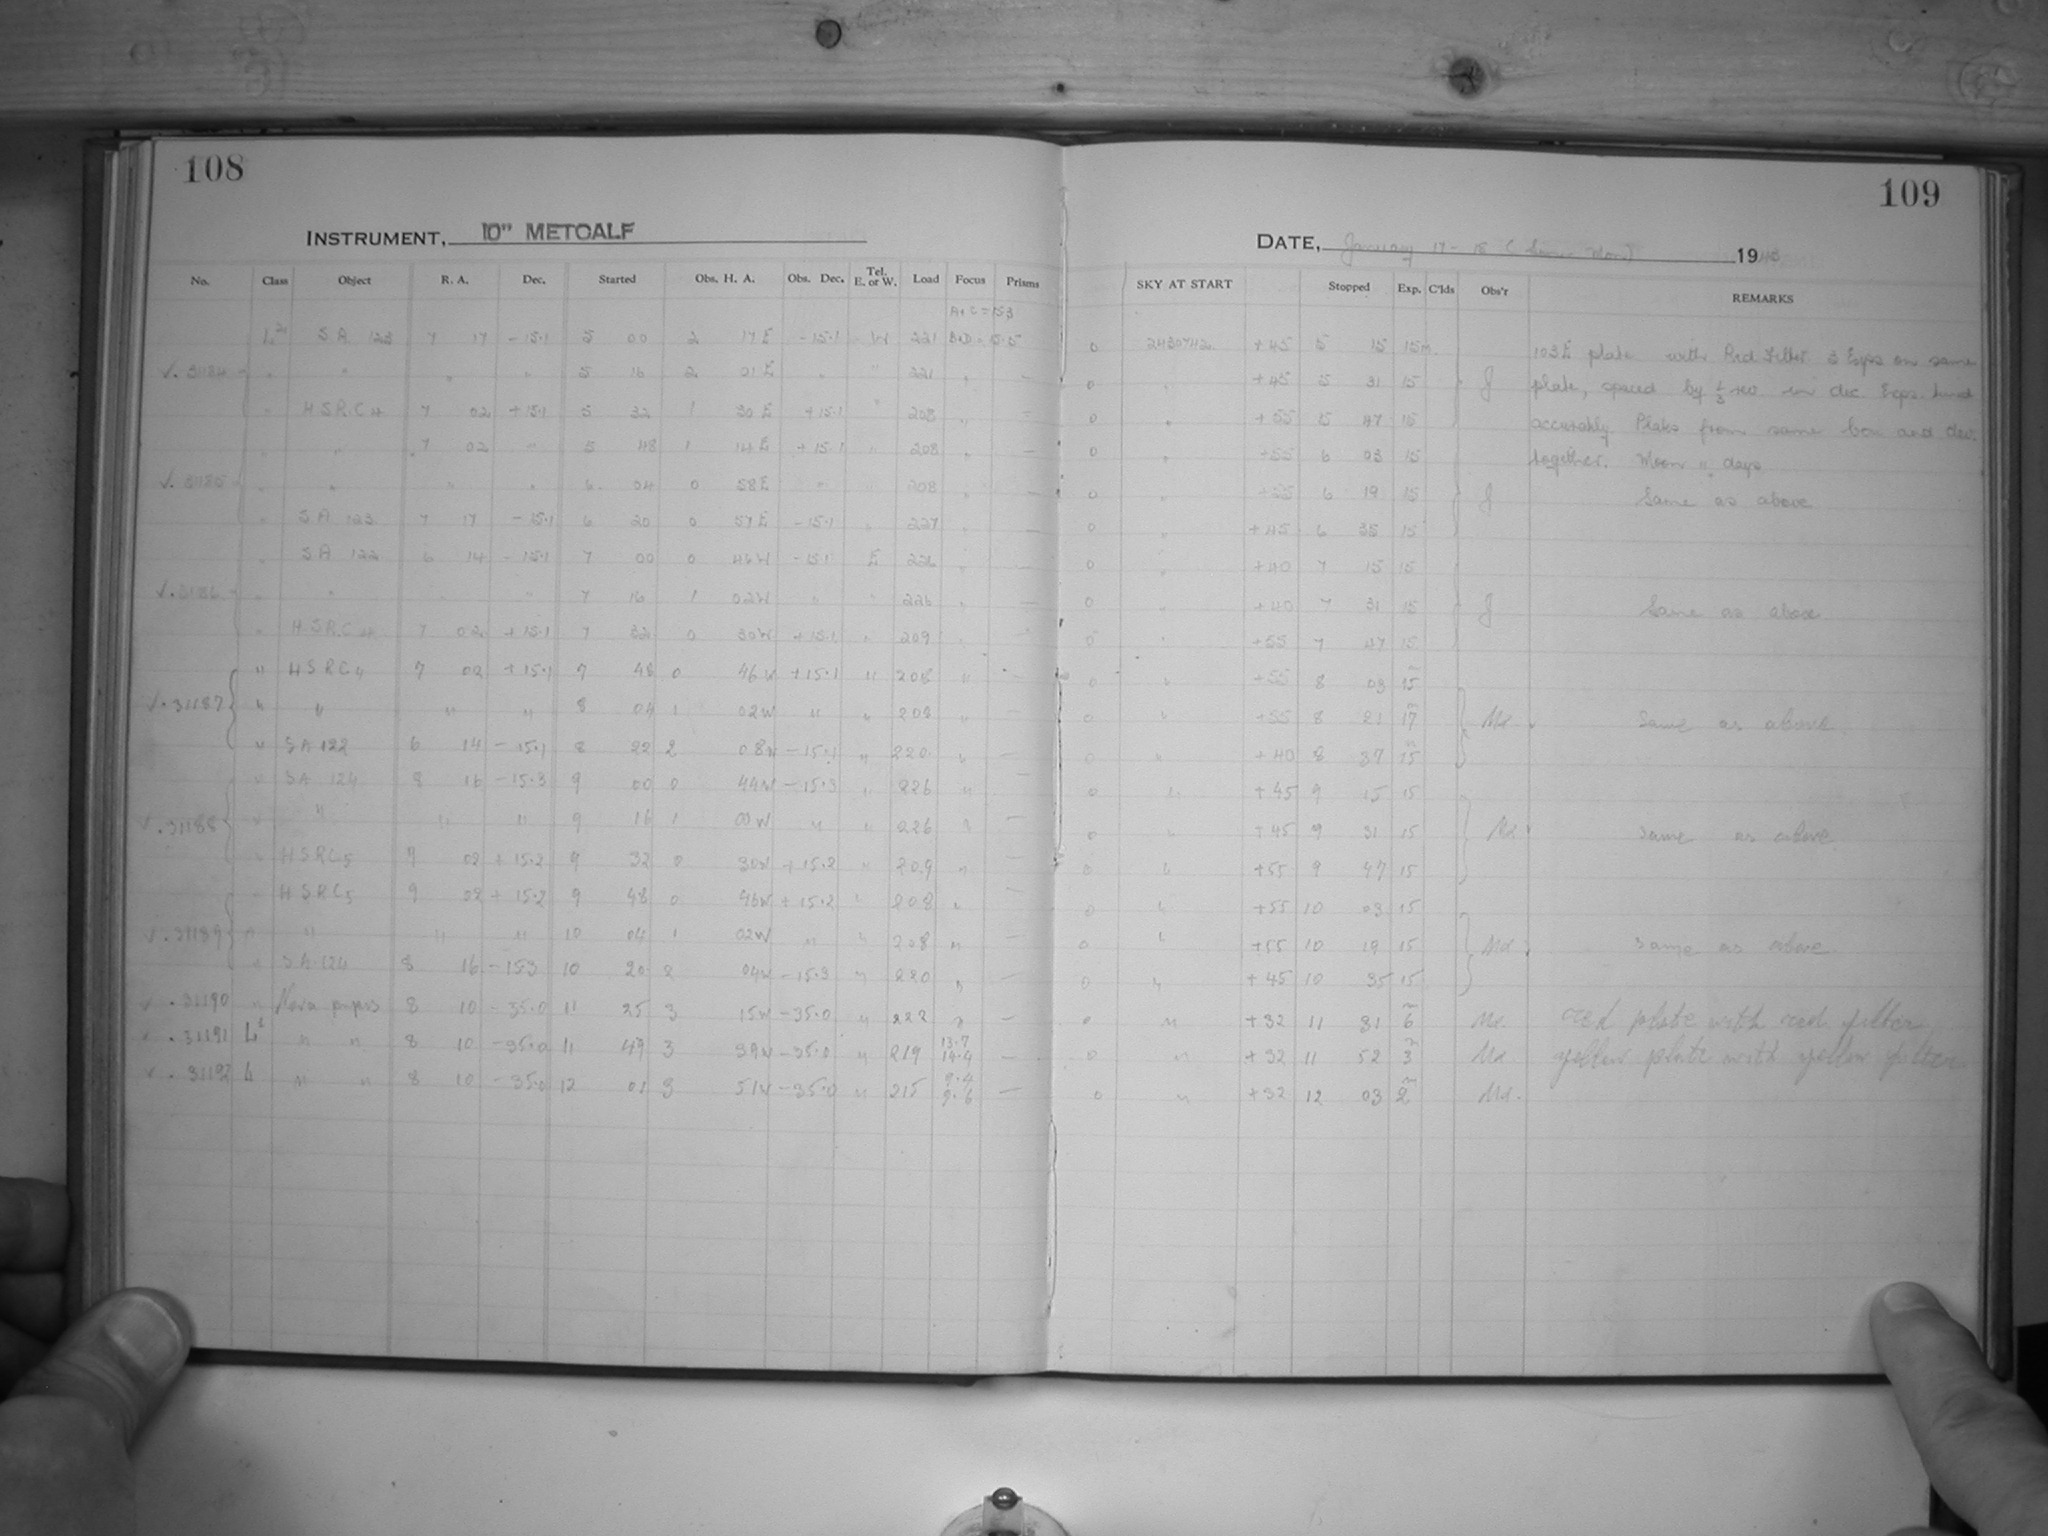 108
INSTRUMENT, 10" METCALF
No. Class Object R. A. Dec. Started Obs. H. A. Obs. Dec. Tel. E. or W. Load Focus Prisms
A+C = 15.3
S A 123 7 17 -15.1 5 00 2 17 E -15.1 W 221 B+D = 15.5
V. 31184 " " " " 5 16 2 01 E " " 221 " —
" H S R C 4 7 02 +15.1 5 32 1 30 E +15.1 " 208 "
" " 7 02 " 5 48 1 14 E +15.1 " 208 " —
V. 31185 " " " " 6 04 0 58 E " " 208 " —
" S A 123 7 17 -15.1 6 20 0 57 E -15.1 " 227 " —
" S A 122 6 14 -15.1 7 00 0 46 W -15.1 E 226 " —
V. 31186 " " " " 7 16 1 02 W " " 226 " —
" H S R C 4 7 02 +15.1 7 32 0 30 W +15.1 " 209 " —
" H S R C 4 7 02 +15.1 7 48 0 46 W +15.1 " 208 " —
V. 31187 " " " " 8 04 1 02 W " " 208 " —
" S A 122 6 14 -15.1 8 22 2 08 W -15.1 " 220 " —
" S A 124 8 16 -15.3 9 00 0 44 W -15.3 " 226 " —
V. 31188 " " " " 9 16 1 W " " 226 " —
" H S R C 5 02 +15.2 9 32 0 30 W +15.2 " 209 " —
" H S R C 5 9 02 +15.2 9 48 0 46 W +15.2 " 208 " —
V. 31189 " " " " 10 04 1 02 W " " 208 " —
" S A 124 8 16 -15.3 10 20 2 04 W -15.3 " 220 " —
V. 31190 " Nova 8 10 -35.0 11 25 3 15 W -35.0 " 222 " —
V. 31191 L " " 8 10 -35.0 11 49 3 39 W -35.0 " 219 13.7 14.4 —
V. 31192 L " " 8 10 -35.0 12 01 3 51 W -35.0 " 215 9.4 9.6 —
109
DATE, January 17-18 1943
SKY AT START Stopped Exp. C'lds Obs'r REMARKS
0 +45 5 15 15m 103E plate with Red Filter 3 Exps on same
0 " +45 5 31 15 J plate, spaced by 1/3 in dec. Exps. timed
0 " +55 5 47 15 accurately. Plates from same box and dev.
0 " +55 6 03 15 together. Moon 11 days
0 " +55 6 19 15 J Same as above
0 " +45 6 35 15
0 " +40 7 15 15
0 " +40 7 31 15 J Same as above
0 " +55 7 47 15
0 " +55 8 03 15
0 " +55 8 21 17 Md. Same as above
0 " +40 8 37 15
0 " +45 9 15 15
0 " +45 9 31 15 Md. Same as above
0 " +55 9 47 15
0 " +55 10 03 15
0 " +55 10 19 15 Md. Same as above
0 " +45 10 35 15
0 " +32 11 31 6 Md. red plate with red filter
0 " +32 11 52 3 Md. yellow plate with yellow filter
0 " +32 12 03 2 Md.